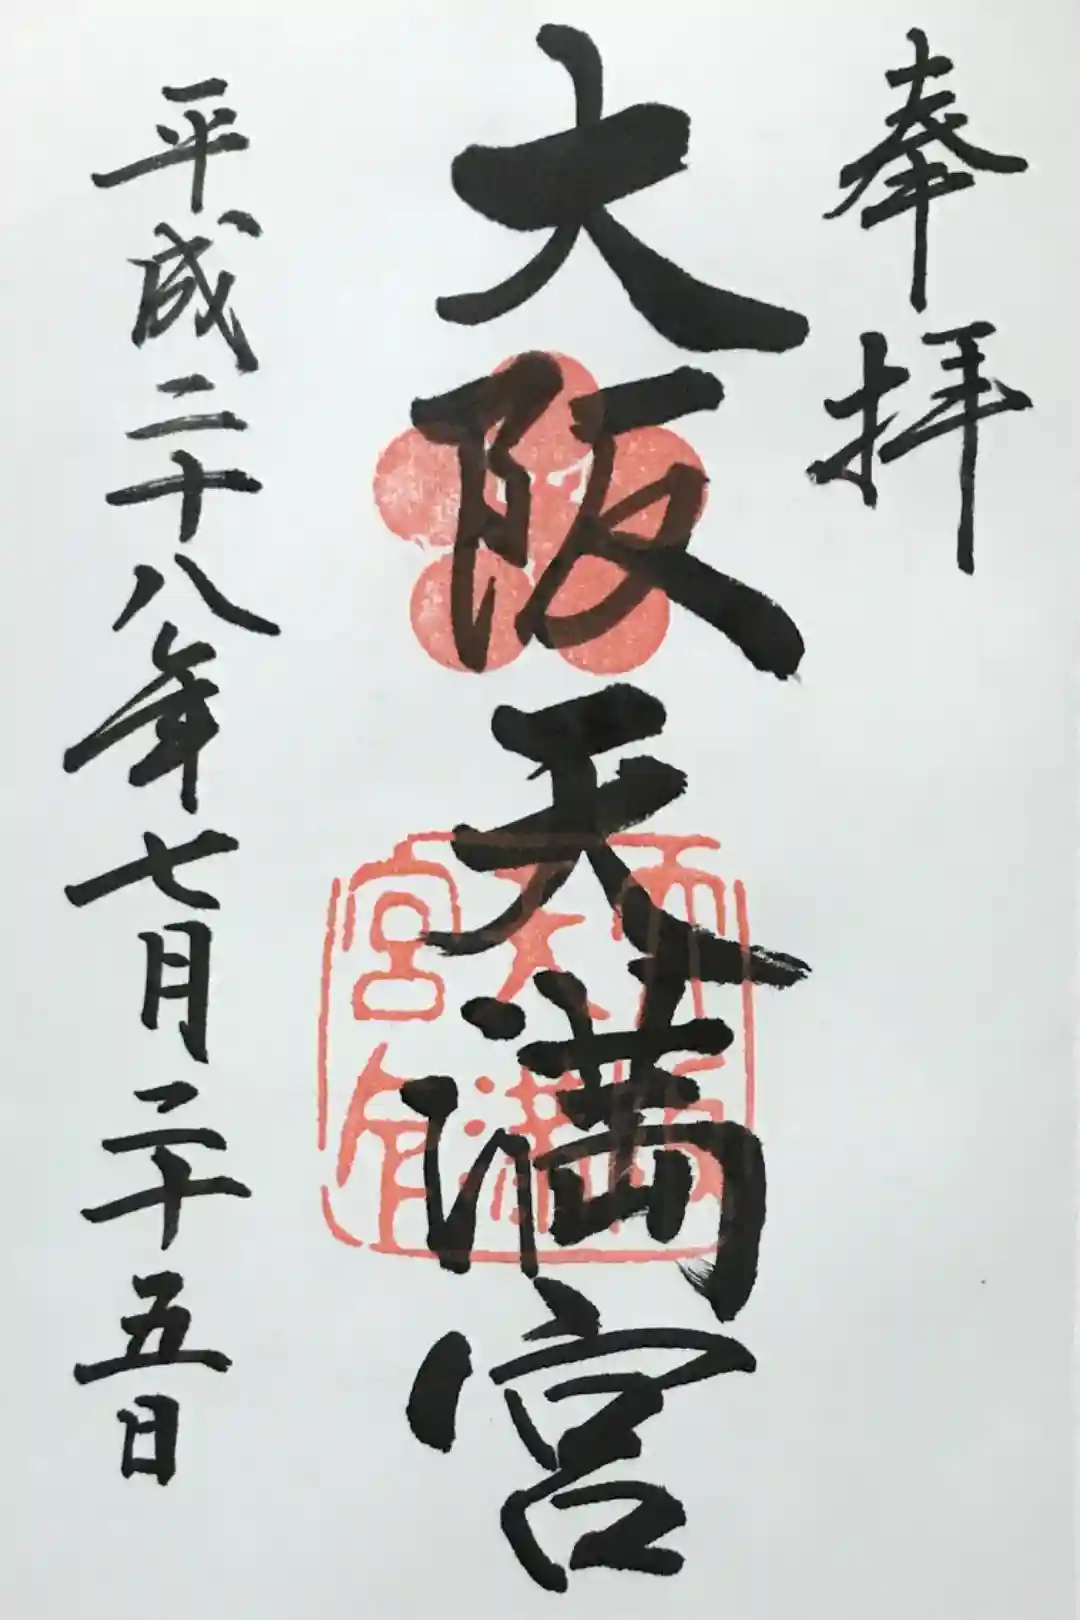 奉拝
大阪天満宮
平成二十八年七月二十五日